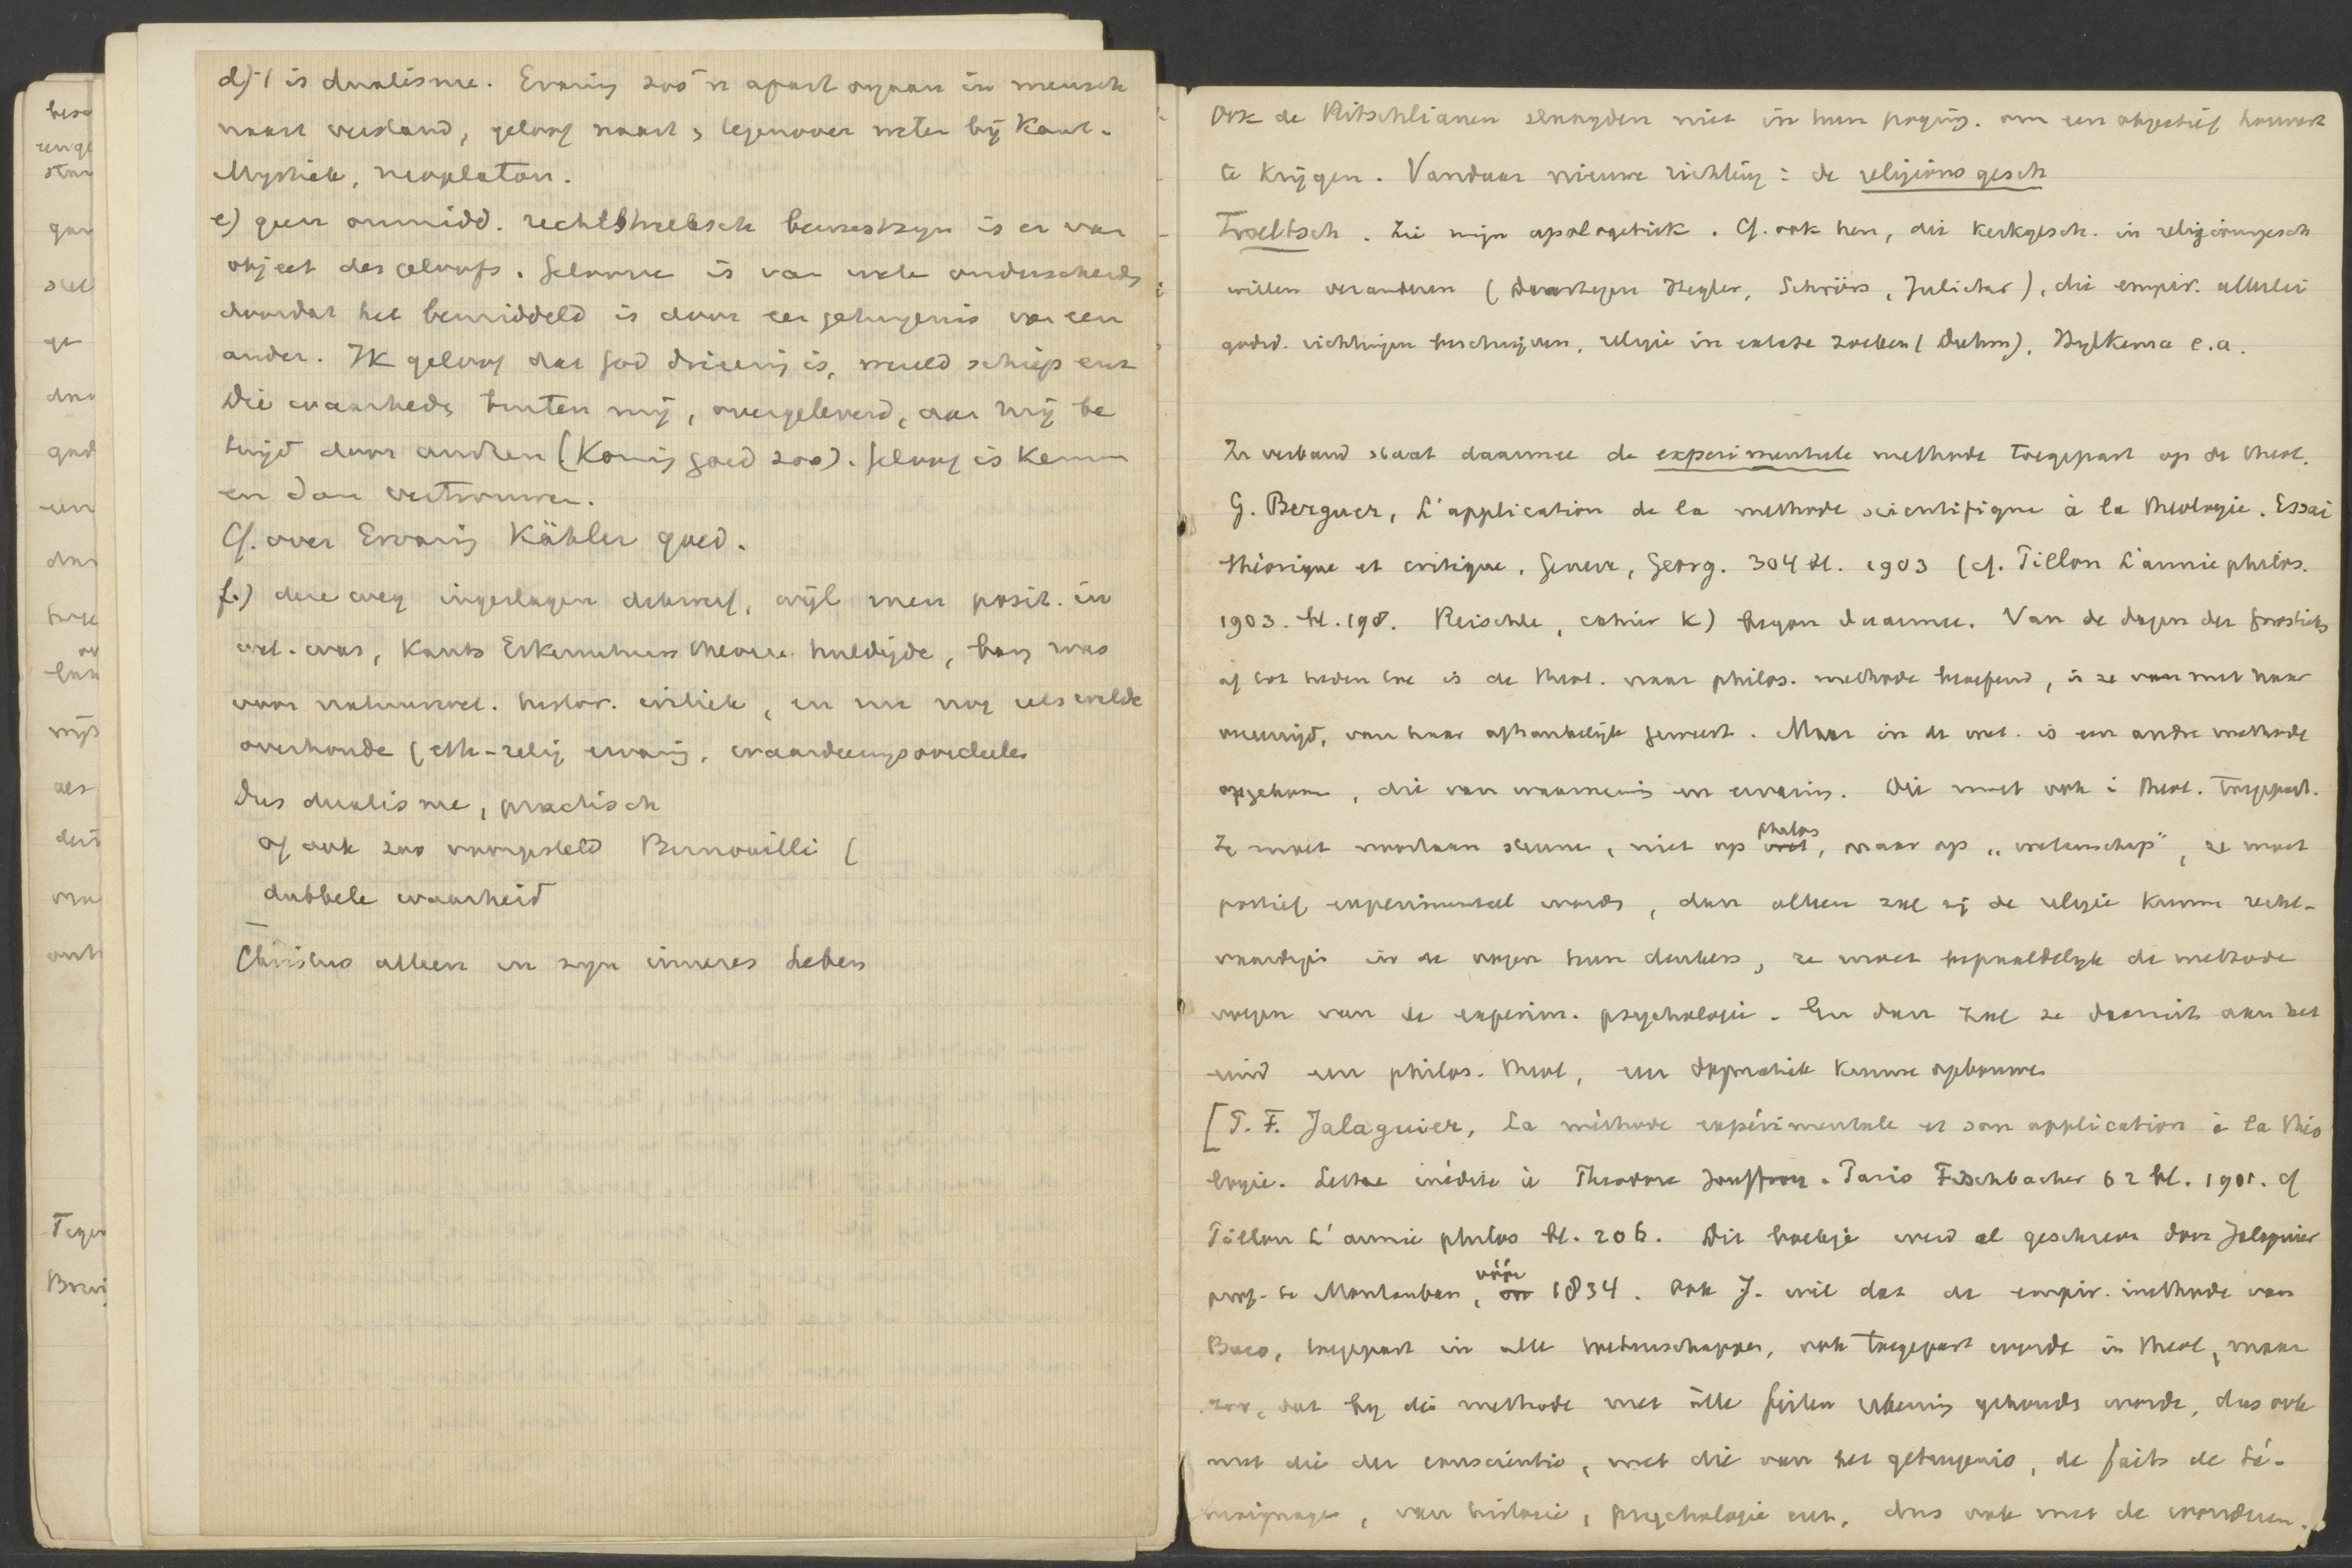 d) 't is dualisme. Ervaring zoo'n apart orgaan in mensch
naast verstand, geloof naast, tegenover weten bij Kant.
Mystiek, neoplaton.
e) geen onmidd. rechtstreeksch bewustzijn is er van
object des geloofs. Geloove is van weten onderscheiden
doordat het bemiddeld is door een getuigenis van een
ander. Ik geloof dat God drieenig is, wereld schiep enz
Die waarheden buiten mij, overgeleverd, aan mij be
tuigd door anderen (Konig goed zoo). Geloof is kennen
en dan vertrouwen.
Cf. over Ervaring Kähler goed.
f.) deze weg ingeslagen dikwerf, wijl men posit. in
wet. was, Kants Erkenntniss theorie huldigde, bang was
voor natuurwet. histor. critiek, en nu nog iets wilde
overhouden (eth-relig ervaring, waardeeringsoordeelen
Dus dualisme, practisch
of ook zoo voorgesteld Bernouilli (
dubbele waarheid
Christus alleen in zijn inneres Leben
besc
gan
ge
god
een
mijs
aes
Tegen
Ook de Ritschlianen slaagden niet in hun poging. om een objectief houvast
te krijgen. Vandaar nieuwe richting: de religions gesch
Troeltsch. Zie mijn apologetiek. Cf. ook hen, die kerkgesch. in religionsgesch
willen veranderen (daartegen Hegler, Schrörs, Julicher), die empir. allerlei
godsd. richtingen beschrijven, religie in extase zoeken (Duhm), Hylkema e.a.
In verband staat daarmee de experimenteele methode toegepast op de theol.
G. Berguer, L'application de la methode scientifique à la theologie. Essai
théorique et critique, Geneve, Georg. 304 bl. 1903 (cf. Pillon L'année philos.
1903. bl. 198. Reischle, cahier K) begon daarmee. Van de dagen der Gnostieks
af tot heden toe is de theol. naar philos. methode beoefend, is ze van met haar
vereenigd, van haar afhankelijk geweest. Maar in de wet. is een andre methode
opgekomen, die van waarneming en ervaring. Die moet ook i theol. toegepast.
Ze moet voortaan steunen, niet op wet philos, maar op „wetenschap", ze moet
positief experimenteel worden, dan alleen zal zij de religie kunnen recht-
vaardigen in de oogen hun denkers, ze moet bepaaldelijk de methode
volgen van de experim. psychologie. En dan zal ze daaruit aan het
eind een philos. theol, een dogmatiek kunnen opbouwen
[P. F. Jalaguier, La méthode expérimentale et son application à la théo
logie. Lettre inédite à Theodore Jouffroy. Paris Fischbacher 62 bl. 1901. cf
Pillon L'année philos bl. 206. Dit boekje werd al geschreven door Jalaguier
prof. te Montauban, on vóór 1834. Ook J. wil dat de empir. methode van
Baco, toegepast in alle wetenschappen, ook toegepast worde in theol, maar
zoo, dat bij die methode met àlle feiten rekening gehouden worde, dus ook
met die der conscientie, met die van het getuigenis, de faits de té-
moignage, van historie, psychologie enz., dus ook met de wonderen.